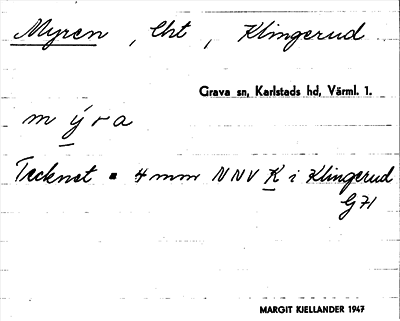 Myren, Lht, Klingerud
Grava sn, Karlstads hd, Värml. 1.
m ý r a
Tecknet ▪ 4 mm NNV K i Klingerud
G71
MARGIT KJELLANDER 1947